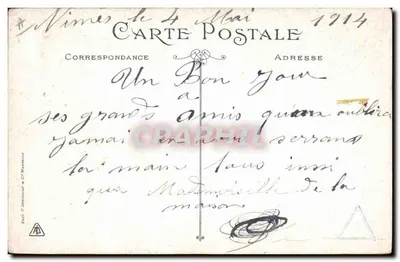 Nimes le 4 Mai 1914
CARTE POSTALE
CORRESPONDANCE
ADRESSE
Un Bon jour
a
ses grands amis quon oublira
jamai en leur serrans
la main tous insi
qua Mademoiselle de la
maison
CPARAMA